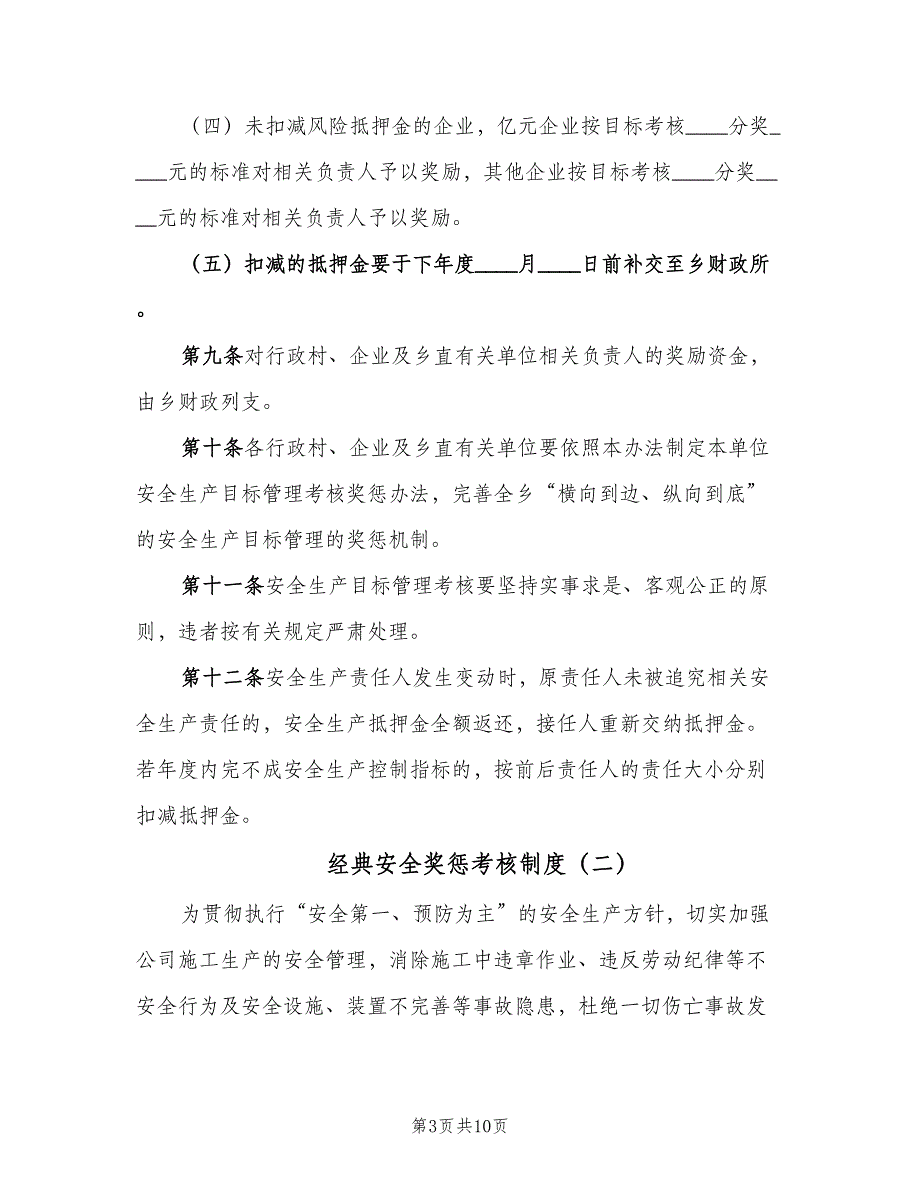 （四）未扣减风险抵押金的企业，亿元企业按目标考核____分奖_
___元的标准对相关负责人予以奖励，其他企业按目标考核____分奖__
__元的标准对相关负责人予以奖励。
（五）扣减的抵押金要于下年度____月____日前补交至乡财政所
。
第九条对行政村、企业及乡直有关单位相关负责人的奖励资金，
由乡财政列支。
第十条各行政村、企业及乡直有关单位要依照本办法制定本单位
安全生产目标管理考核奖惩办法，完善全乡“横向到边、纵向到底”
的安全生产目标管理的奖惩机制。
第十一条安全生产目标管理考核要坚持实事求是、客观公正的原
则，违者按有关规定严肃处理。
第十二条安全生产责任人发生变动时，原责任人未被追究相关安
全生产责任的，安全生产抵押金全额返还，接任人重新交纳抵押金。
若年度内完不成安全生产控制指标的，按前后责任人的责任大小分别
扣减抵押金。
经典安全奖惩考核制度（二）
为贯彻执行“安全第一、预防为主”的安全生产方针，切实加强
公司施工生产的安全管理，消除施工中违章作业、违反劳动纪律等不
安全行为及安全设施、装置不完善等事故隐患，杜绝一切伤亡事故发
第3页共10页